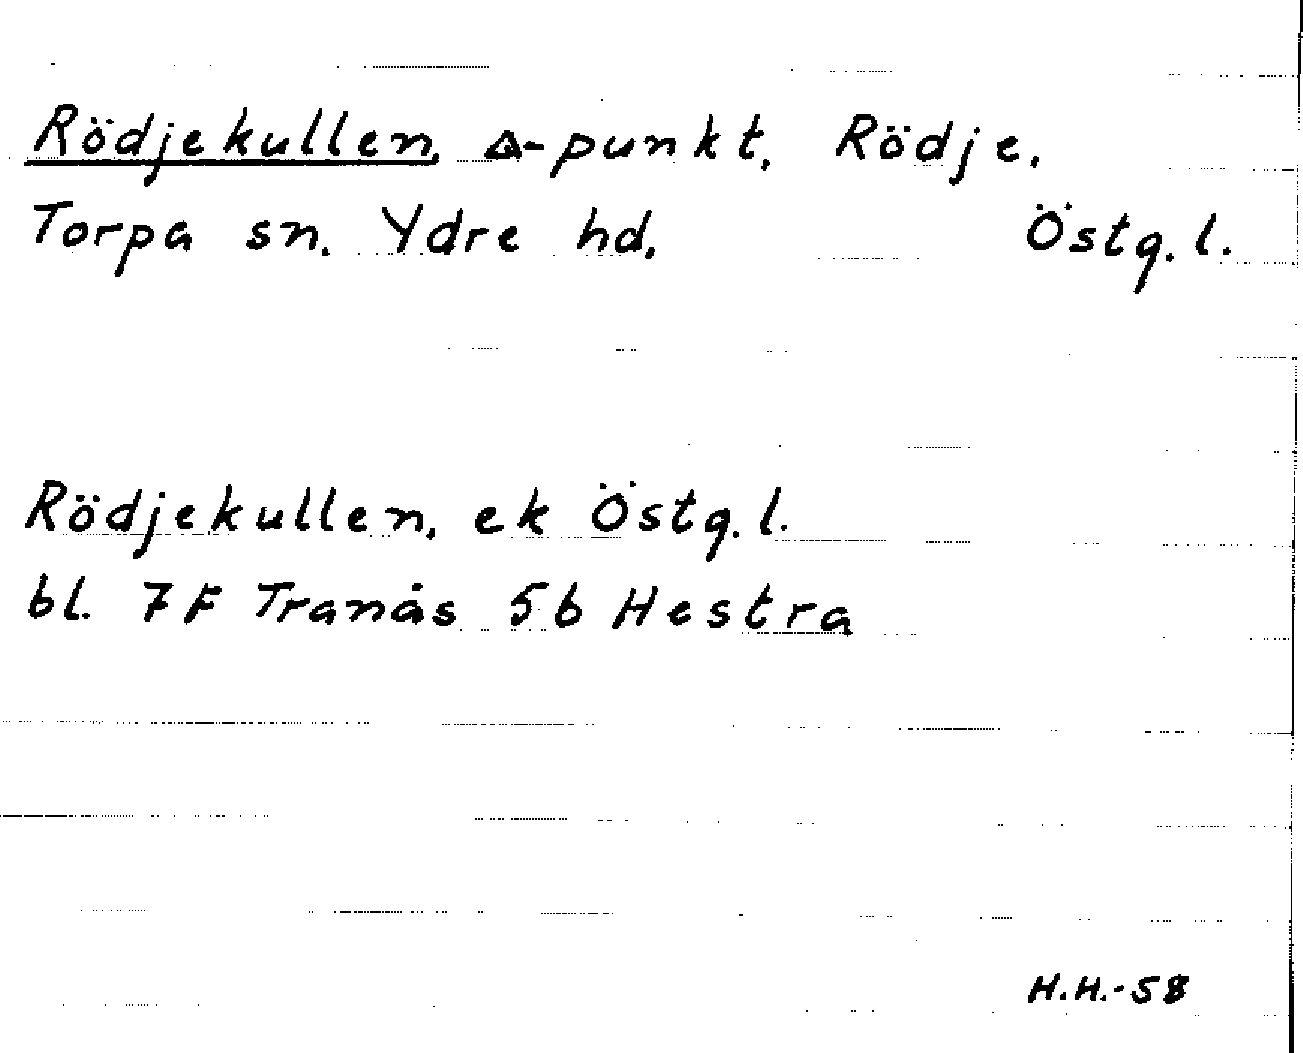 Rödjekullen, Δ-punkt, Rödje.
Torpa sn. Ydre hd. Östg. l.
Rödjekullen, ek Östg. l.
bl. 7F Tranås 5b Hestra
H.H.-58